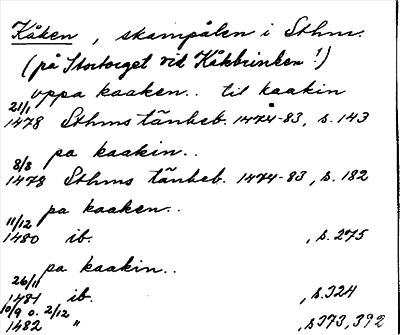 Kåken, skampålen i Sthm.
(på Stortorget vid Kåkbrinken!)
uppa kaaken.. til kaakin
21/1 1478 Sthms tänkeb. 1474-83, s. 143
pa kaakin..
8/8 1478 Sthms tänkeb. 1474-83, s. 182
pa kaaken..
11/12 1480 ib. , s. 275
pa kaakin..
26/11 1481 ib. , s. 324
10/9 o. 2/12 1482 " , s 373, 392